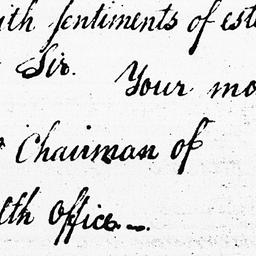 ith sentiments of este
Sir.
Your mo
Chairman of
lth Office